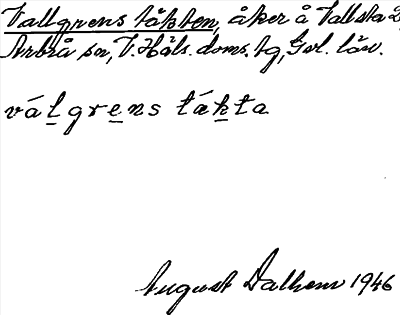 Vallgrens täkten, åker å Vallsta 2,
Arbrå sn, V. Häls. doms. tg, Gvl. län.
válgrens tákta
August Dalhem 1946